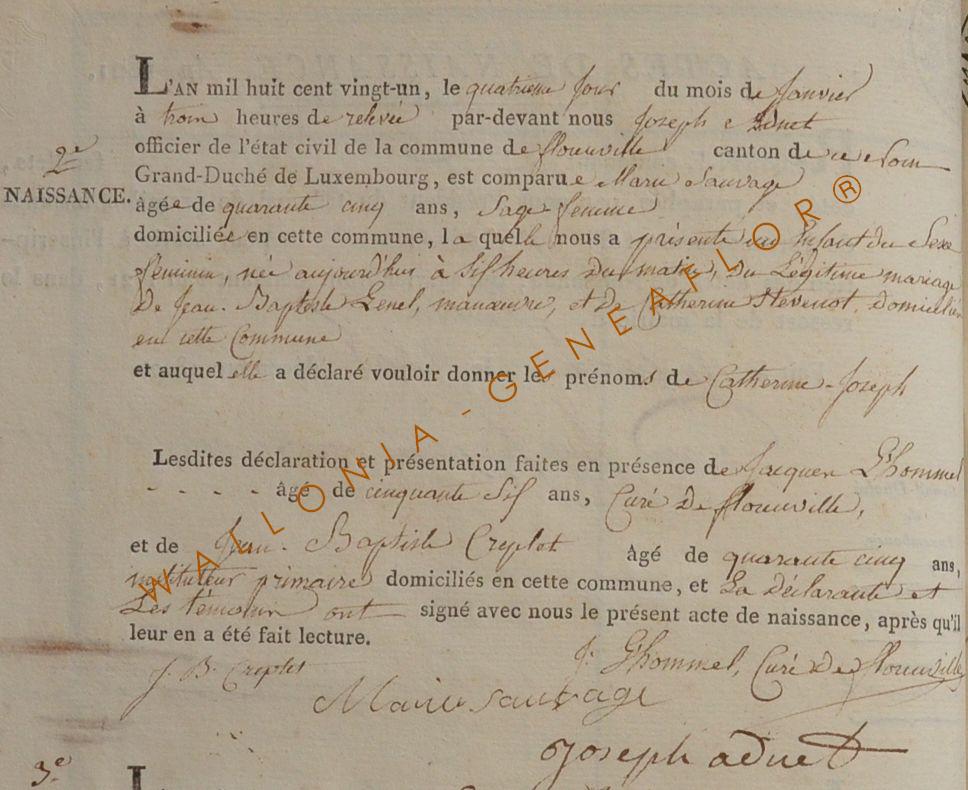 L'AN mil huit cent vingt-un, le quatrieme Jour du mois de Janvier
à trois heures de relevée par-devant nous Joseph Adnet
officier de l'état civil de la commune de florenville canton de
Grand-Duché de Luxembourg, est comparue Marie Sauvage
2e
NAISSANCE.
âgée de quarante cinq ans, Sage femme
domiciliée en cette commune, la quelle nous a présenté un Enfant du Sexe
féminin, née aujourd'hui à Six heures du matin, du Légitime mariage
de Jean-Baptiste Lenel, manœuvre, et de Catherine Stevenot, domiciliés
en cette Commune
et auquel elle a déclaré vouloir donner les prénoms de Catherine-Joseph
Lesdites déclaration et présentation faites en présence de Jacques L'hommel
- - - - âgé de cinquante Six ans, Curé de florenville,
et de Jean-Baptiste Creplet âgé de quarante cinq ans,
instituteur primaire domiciliés en cette commune, et La déclarante et
Les témoins ont signé avec nous le présent acte de naissance, après qu'il
leur en a été fait lecture.
J. B. Creplet
J. L'hommel, Curé de florenville
Marie sauvage
joseph adnet
3e
L
WALLONIA-GENEAFLOR®